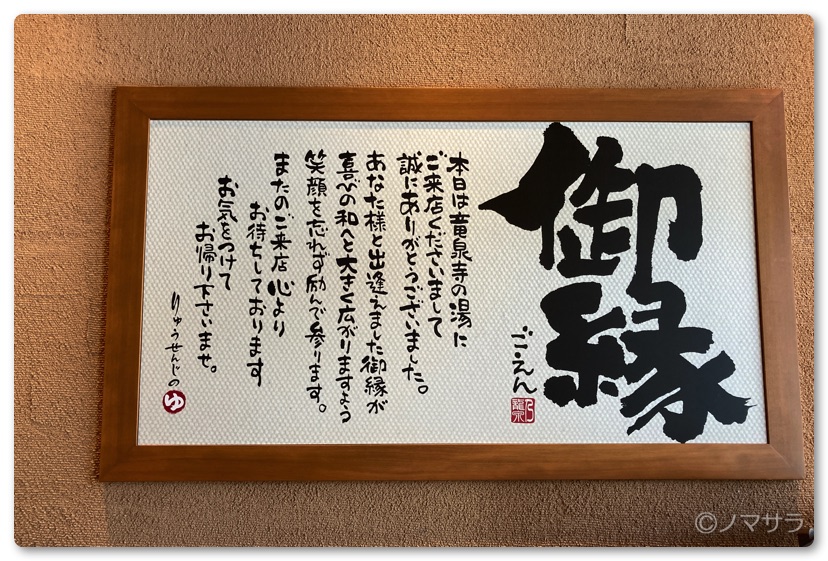 御縁
ご・えん
本日は竜泉寺の湯に
ご来店くださいまして
誠にありがとうございました。
あなた様と出逢えました御縁が
喜びの和へと大きく広がりますよう
笑顔を忘れず励んで参ります。
またのご来店心より
お待ちしております
お気をつけて
お帰り下さいませ。
りゅうせんじの
ゆ
©ノマサラ